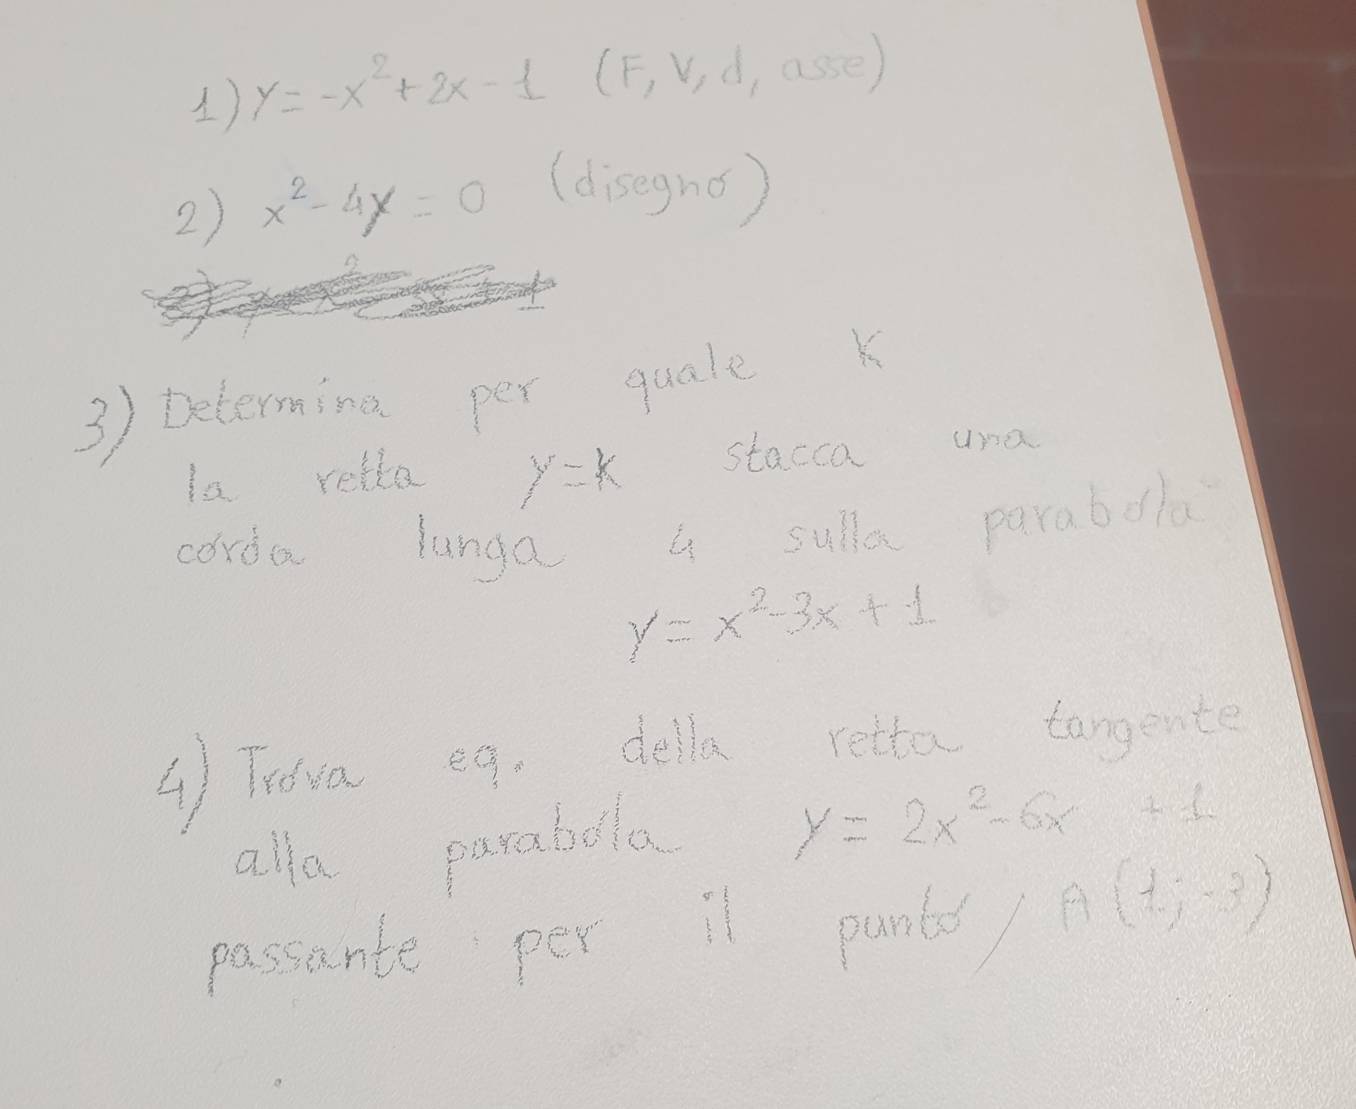 1) y = -x² + 2x - 1 (F, V, d, asse)
2) x² - 4y = 0 (disegno)
3) Determina per quale K
la retta y=k stacca una
corda lunga 4 sulla parabola
y = x² - 3x + 1
4) Trova eq. della retta tangente
alla parabola y = 2x² - 6x + 1
passante per il punto A (1; -3)